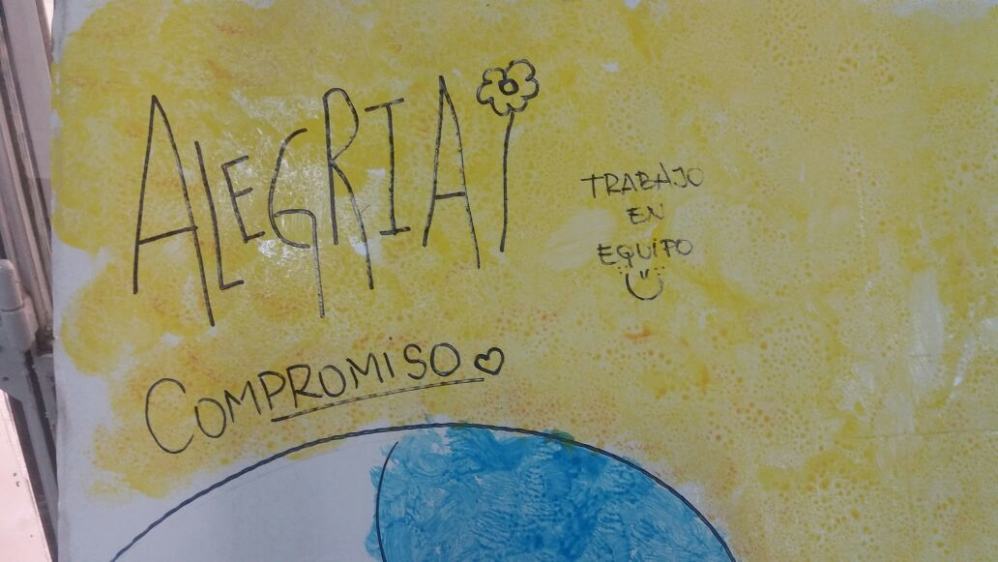 ALEGRIA
TRABAJO
EN
EQUIPO
COMPROMISO